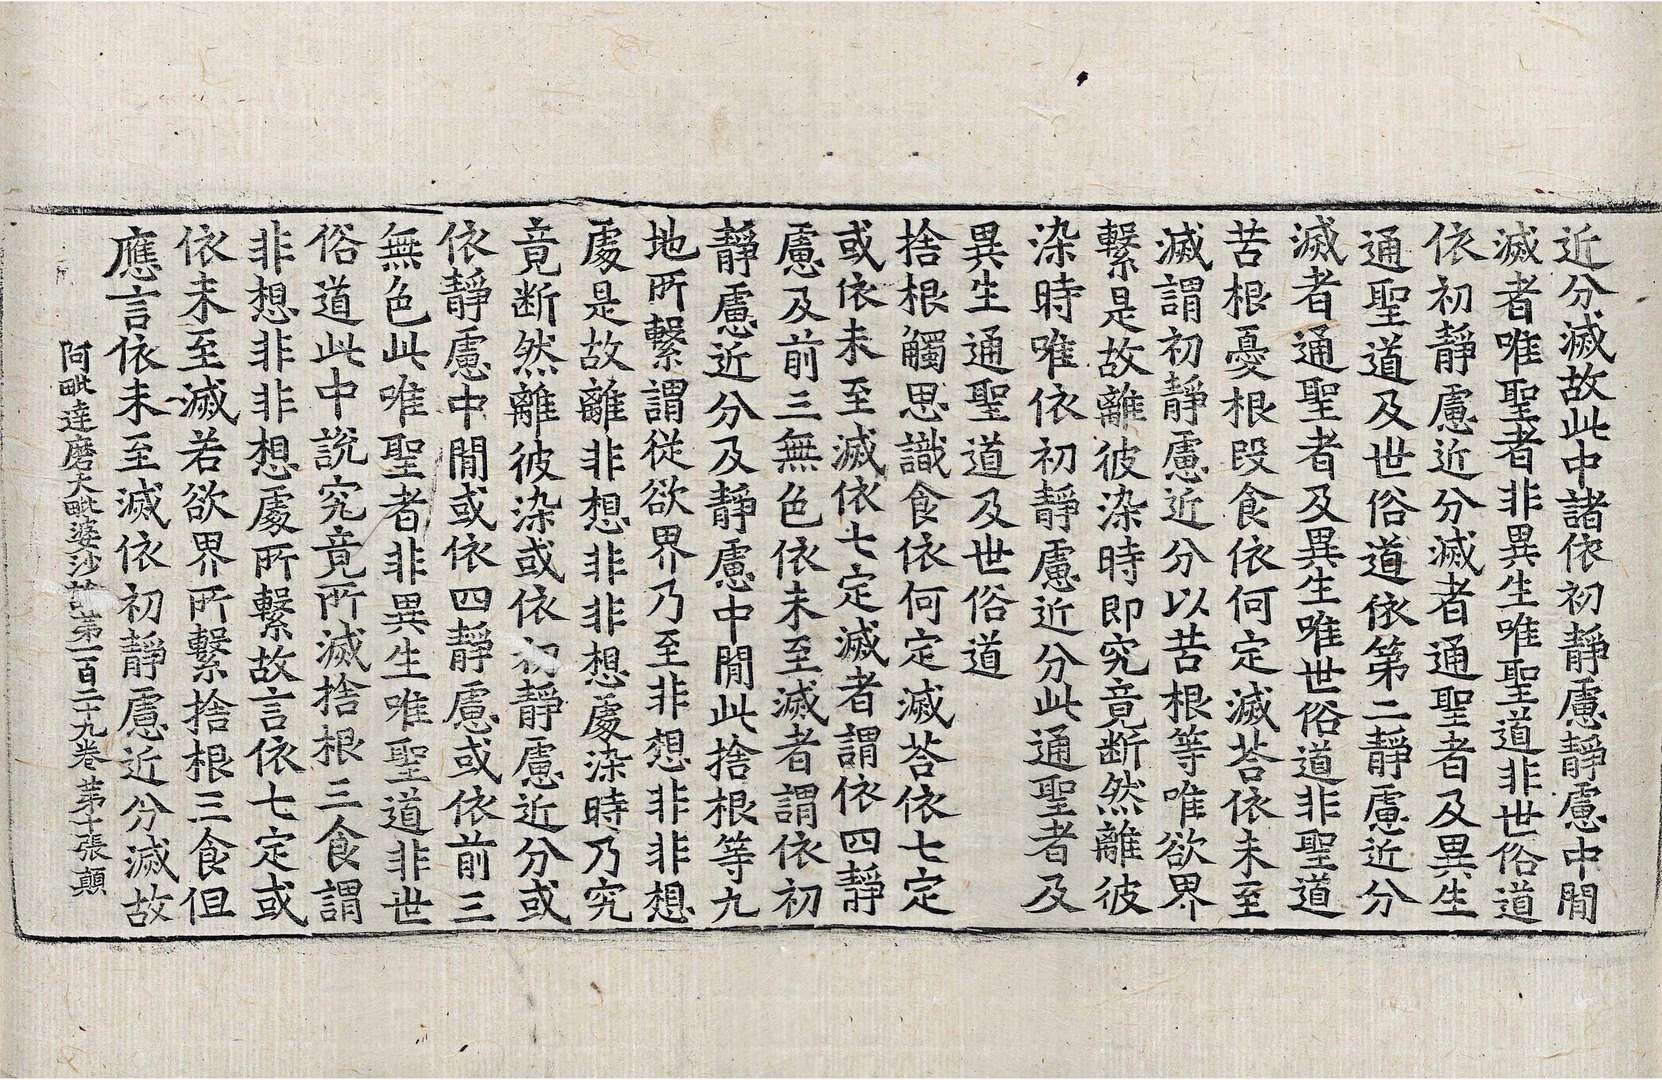 近分滅故此中諸依初静慮静慮中閒
滅者唯聖者非異生唯聖道非世俗道
依初静慮近分滅者通聖者及異生
通聖道及世俗道依第二静慮近分
滅者通聖者及異生唯世俗道非聖道
苦根憂根段食依何定滅荅依未至
滅謂初静慮近分以苦根等唯欲界
繫是故離彼染時即究竟断然離彼
染時唯依初静慮近分此通聖者及
異生通聖道及世俗道
捨根觸思識食依何定滅荅依七定
或依未至滅依七定滅者謂依四静
慮及前三無色依未至滅者謂依初
静慮近分及静慮中閒此捨根等九
地所繫謂從欲界乃至非想非非想
處是故離非想非非想處染時乃究
竟断然離彼染或依初静慮近分或
依静慮中閒或依四静慮或依前三
無色此唯聖者非異生唯聖道非世
俗道此中說究竟所滅捨根三食謂
非想非非想處所繫故言依七定或
依未至滅若欲界所繫捨根三食但
應言依未至滅依初静慮近分滅故
阿毗達磨大毗婆沙論第一百二十九卷 第十張 顛